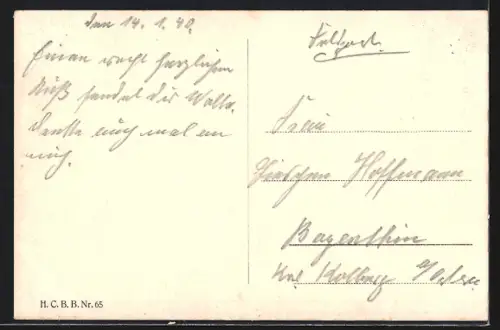 den 14. 1. 40.
Einen recht herzlichen
Gruß sendet dir Walter.
Denke auch mal an
mich.
Feldpost.
Frau
Hoffmann
Bagenthin
Krs. Kolberg
H. C. B. B. Nr. 65